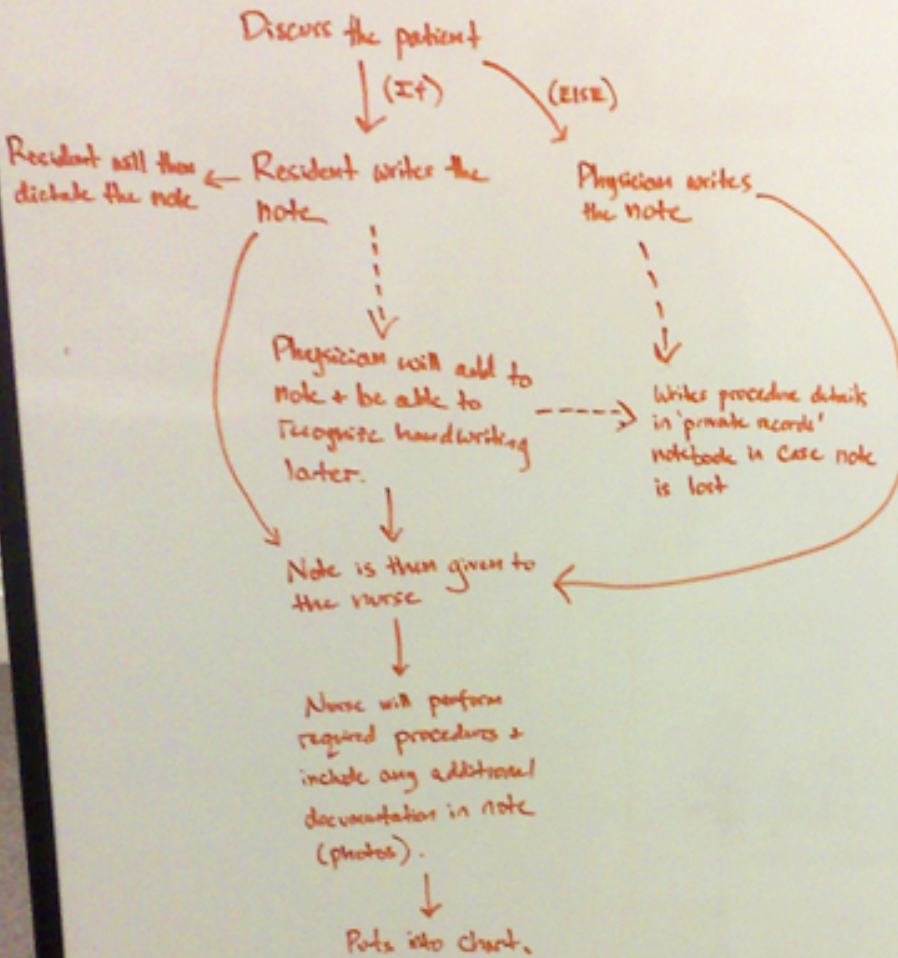 Discuss the patient
(If)
(ElSE)
Resident will then
dictate the note
Resident writes the
note
Physician writes
the note
Physician will add to
note + be able to
recognize handwriting
later.
Writes procedure details
in 'private records'
notebook in case note
is lost
Note is then given to
the nurse
Nurse will perform
required procedures +
include any additional
documentation in note
(photos).
Puts into chart.